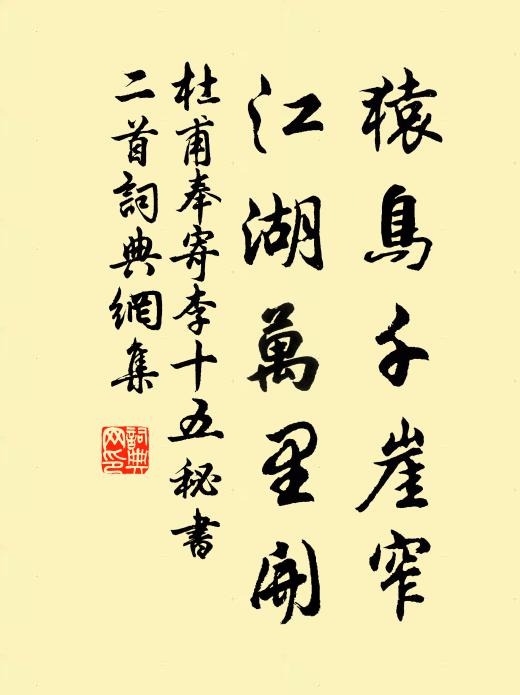 猿鳥千崖窄
江湖萬里開
杜甫奉寄李十五秘書
二首詞典網集
詞典
網印